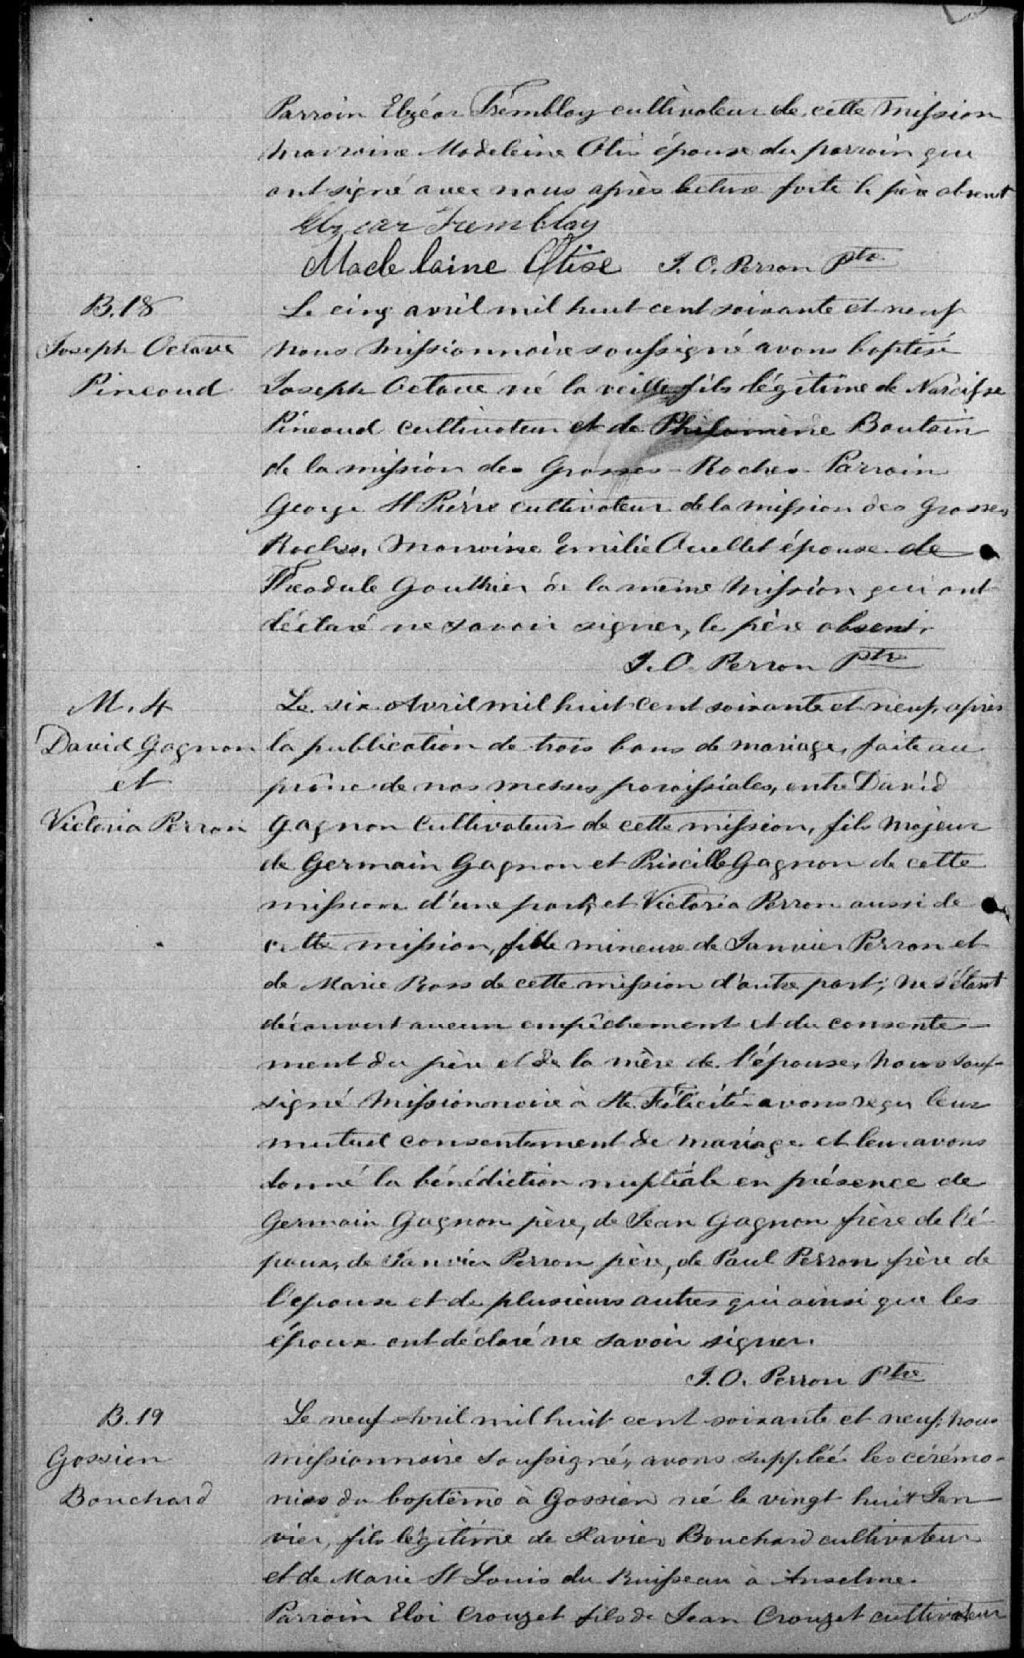 Parrain Elzéar Tremblay cultivateur de cette mission
marraine Madeleine Otis épouse du parrain qui
ont signé avec nous après lecture faite le père absent
Elzear Tremblay
Madelaine Otise J. O. Perron Ptre
B. 18
Joseph Octave
Pineaud
Le cinq avril mil huit cent soixante et neuf
nous missionnaire soussigné avons baptisé
Joseph Octave né la veille fils légitime de Narcisse
Pineaud cultivateur et de Philomène Boutain
de la mission des Grosses-Roches Parrain
George St Pierre cultivateur de la mission des Grosses
Roches, Marraine Emilie Ouellet épouse de
Théodule Gauthier de la même mission qui ont
déclaré ne savoir signer, le père absent.
J. O. Perron Ptre
M. 4
David Gagnon
et
Victoria Perron
Le six Avril mil huit cent soixante et neuf, après
la publication de trois bans de mariage, faite au
prône de nos messes paroissiales, entre David
Gagnon Cultivateur de cette mission, fils majeur
de Germain Gagnon et Priscille Gagnon de cette
mission d'une part, et Victoria Perron aussi de
cette mission, fille mineure de Janvier Perron et
de Marie Ross de cette mission d'autre part; ne s'étant
découvert aucun empêchement et du consente-
ment du père et de la mère de l'épouse, Nous sous-
signé Missionnaire à Ste Félicité avons reçu leur
mutuel consentement de mariage et leur avons
donné la bénédiction nuptiale en présence de
Germain Gagnon père, de Jean Gagnon frère de l'é-
poux, de Janvier Perron père, de Paul Perron frère de
l'épouse et de plusieurs autres qui ainsi que les
époux ont déclaré ne savoir signer.
J. O. Perron Ptre
B. 19
Gossien
Bouchard
Le neuf Avril mil huit cent soixante et neuf, nous
missionnaire soussigné, avons suppléé les cérémo-
nies du baptême à Gossien né le vingt huit Jan
vier, fils légitime de Xavier Bouchard cultivateur
et de Marie St Louis du Ruisseau à Anselme.
Parrain Eloi Crouzet fils de Jean Crouzet cultivateur